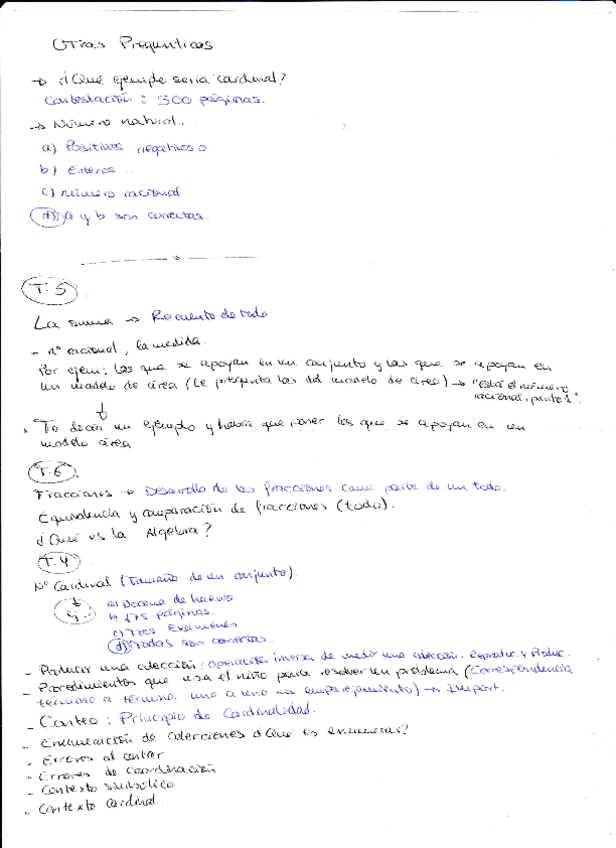 Otras Pregunticas
→ ¿Qué ejemplo seria cardinal?
Contestación: 300 páginas.
→ Número natural...
a) Positivos negativos 0
b) Enteros...
c) número racional
d) a y b son correctas.
T.5
La suma → Recuento de todo
- nº racional, la medida.
Por ejem: las que se apoyan en un conjunto y las que se apoyan en
un modelo de área (Le pregunta las del modelo de área) → "Está el número
racional, punto 1".
Te decía un ejemplo y había que poner los que se apoyan en un
modelo área
T.6
Fracciones → Desarrollo de las fracciones como parte de un todo.
Equivalencia y comparación de fracciones (todo).
¿Qué es la Algebra?
T.4
Nº Cardinal (Tamaño de un conjunto).
Ej. a) Docena de huevos.
b) 175 páginas.
c) Tres Exámenes
d) Todas son correctas.
- Producir una colección: operación inversa de medir una colección. Reproduc. y Produc.
- Procedimientos que usa el niño para resolver un problema (Correspondencia
término a término. uno a uno emparejamiento) → Import.
- Conteo: Principio de Cardinalidad.
- Enumeración de colecciones ¿Que es enumerar?
- Errores al contar
- Errores de coordinación
- Contexto simbólico
- Contexto Cardinal.